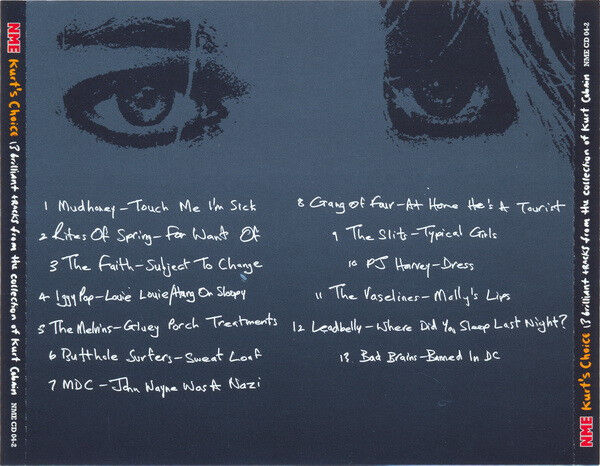 NME Kurt's Choice 13 brilliant tracks from the collection of Kurt Cobain NME CD 04-2
1 Mudhoney – Touch Me I'm Sick
2 Rites Of Spring – For Want Of
3 The Faith – Subject To Change
4 Iggy Pop – Louie Louie/Hang On Sloopy
5 The Melvins – Gluey Porch Treatments
6 Butthole Surfers – Sweat Loaf
7 MDC – John Wayne Was A Nazi
8 Gang Of Four – At Home He's A Tourist
9 The Slits – Typical Girls
10 PJ Harvey – Dress
11 The Vaselines – Molly's Lips
12 Leadbelly – Where Did You Sleep Last Night?
13 Bad Brains – Banned In DC
NME Kurt's Choice 13 brilliant tracks from the collection of Kurt Cobain NME CD 04-2